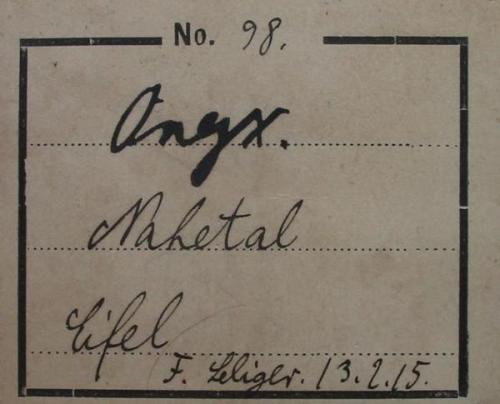 No. 98.
Onyx.
Nahetal
Eifel
F. Seliger. 13.2.15.